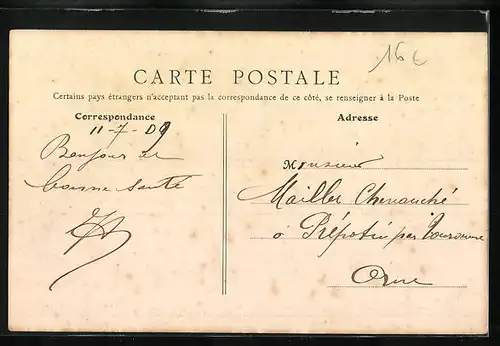 16€
CARTE POSTALE
Certains pays étrangers n'acceptant pas la correspondance de ce côté, se renseigner à la Poste
Correspondance
Adresse
11-7-09
Bonjour et
bonne santé
Monsieur
Mailler Chenanché
à Prépotin par Tourouvre
Orne